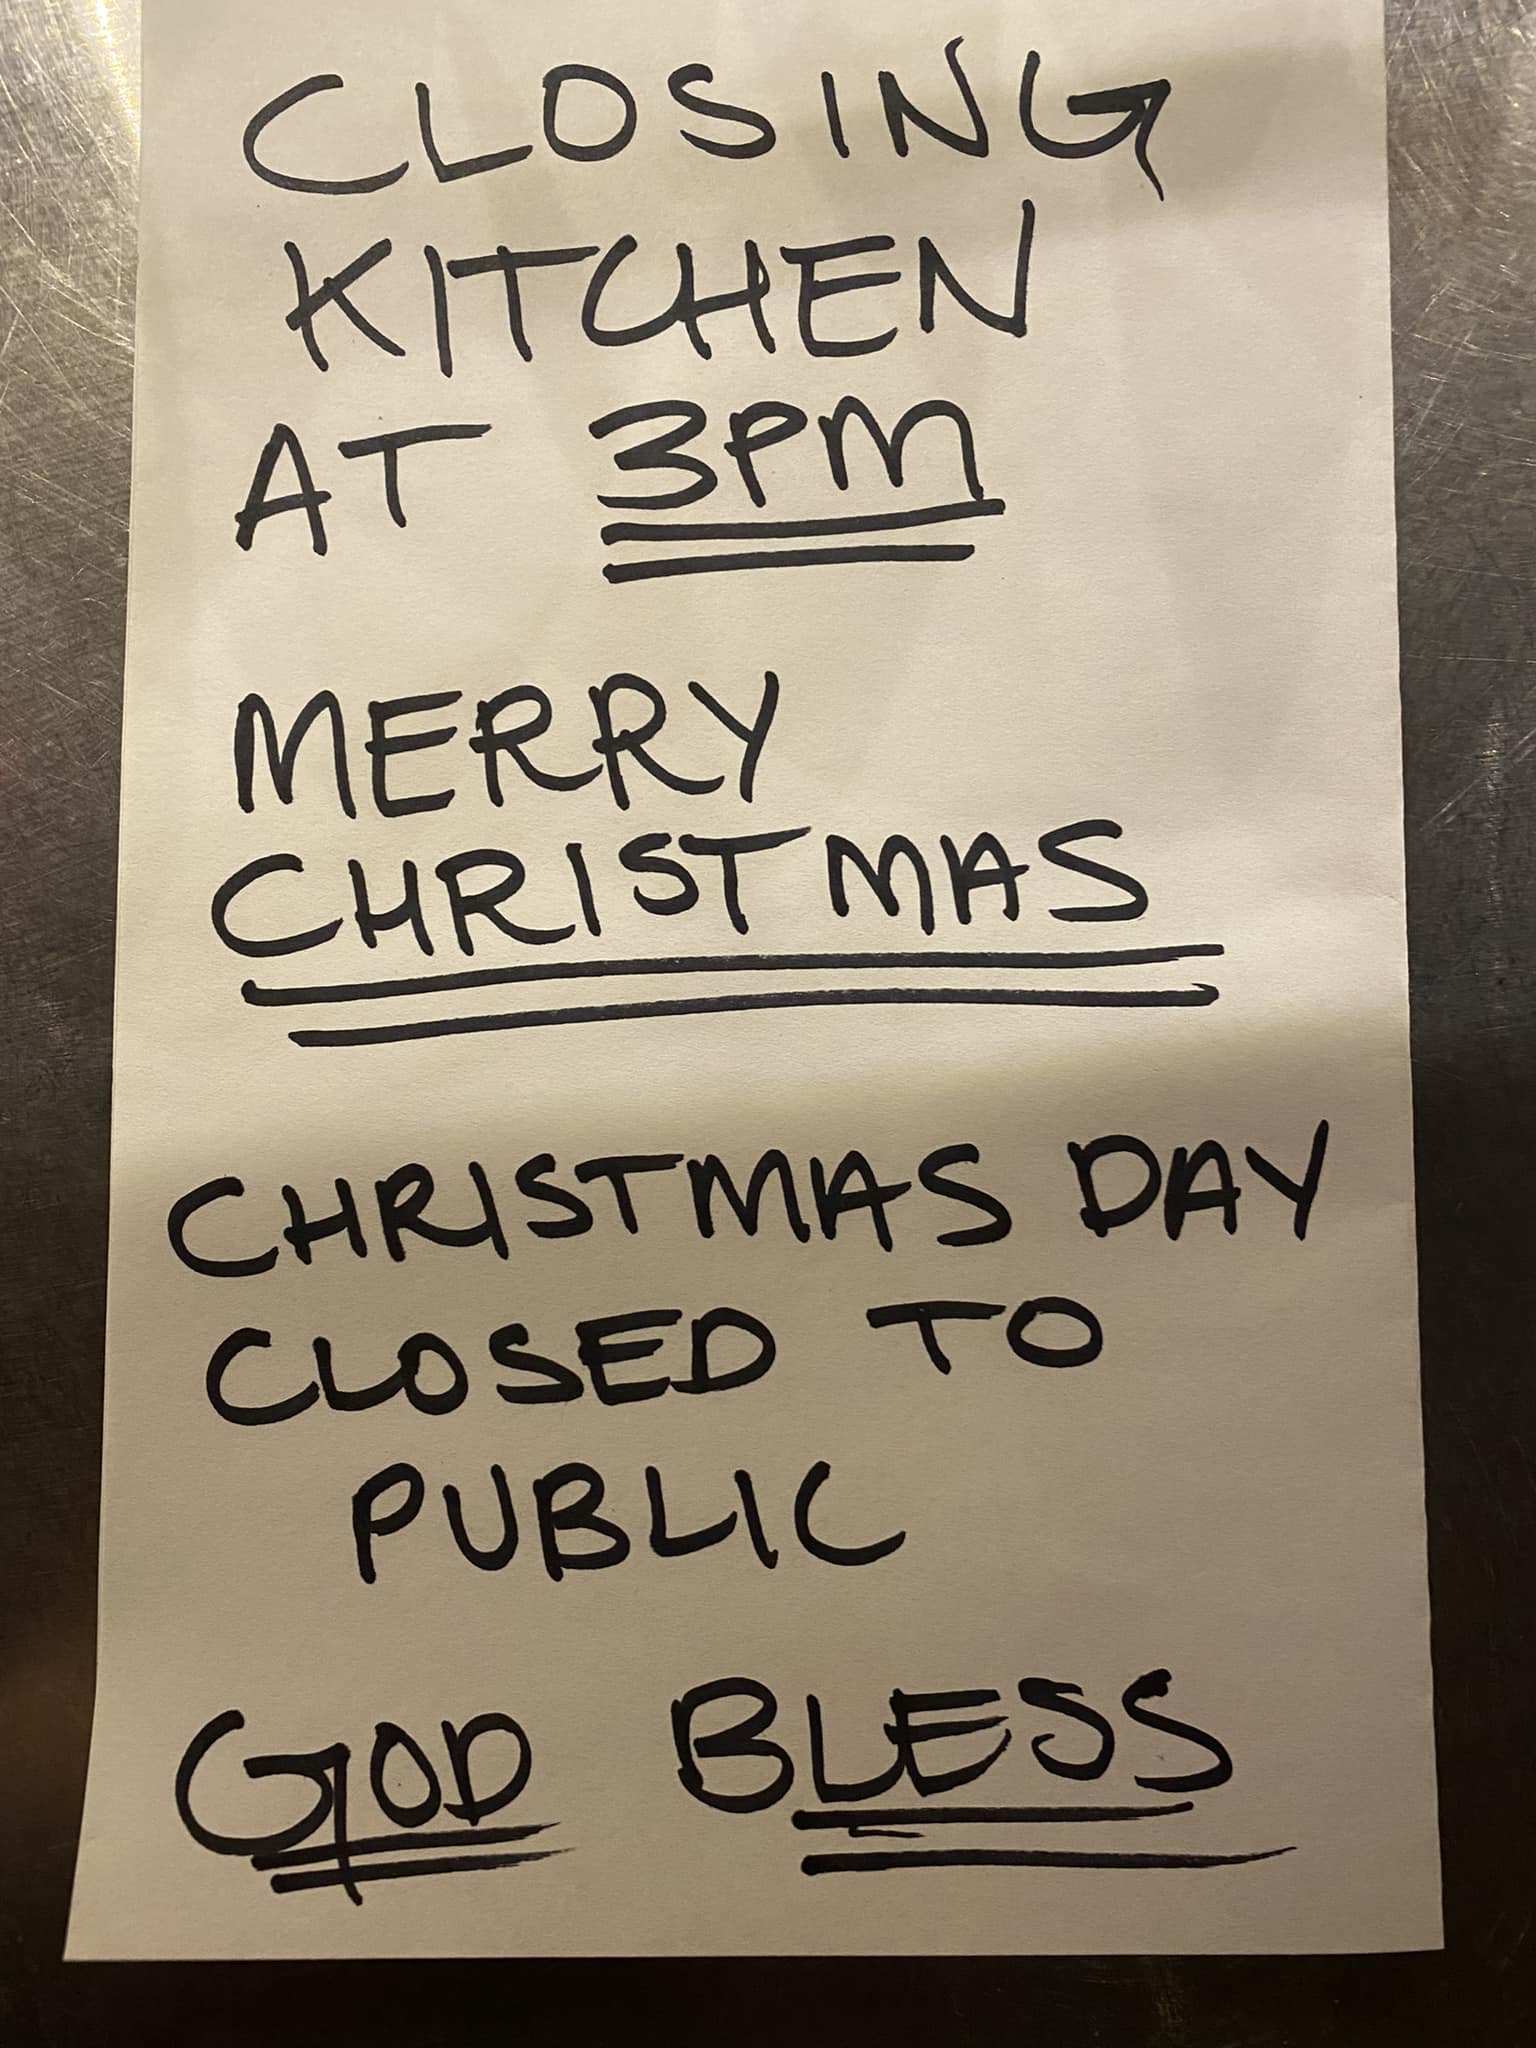 CLOSING
KITCHEN
AT 3PM
MERRY
CHRISTMAS
CHRISTMAS DAY
CLOSED TO
PUBLIC
GOD BLESS